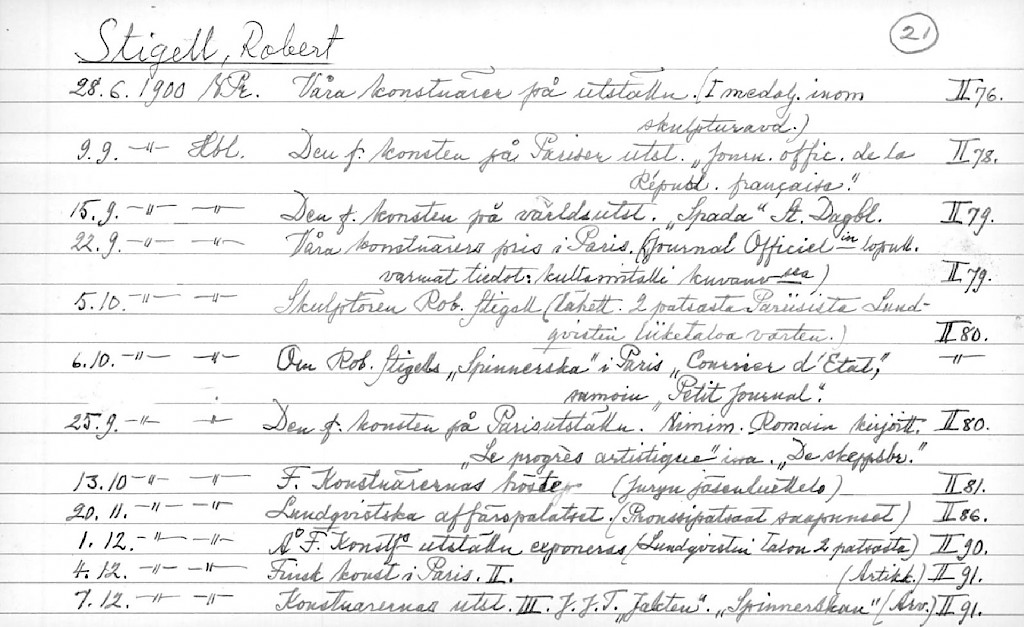 Stigell, Robert 21
28.6.1900 N.Pr. Våra konstnärer på utställn. (I medalj. inom II 76.
skulpturavd.)
9.9. -"- Hbl. Den f. konsten på Pariser utst. „Journ. offic. de la II 78.
Républ. française."
15.9. -"- -"- Den f. konsten på världsutst. „Spada" St. Dagbl. II 79.
22.9. -"- -"- Våra konstnärers pris i Paris. (Journal Officiel in lopull.
varmat tiedot: kultamitalli kuvanv ssa) II 79.
5.10. -"- -"- Skulptören Rob. Stigell (Lähett. 2 patsasta Pariisista Lund-
qvistin liiketaloa varten.) II 80.
6.10. -"- -"- Om Rob. Stigells „Spinnerska" i Paris „Courrier d'Etat," -"-
samoin „Petit Journal".
25.9. -"- -"- Den f. konsten på Parisutställn. Nimim. Romain kirjoitt. II 80.
„Le progrès artistique" issa. „De skeppsbr."
13.10 -"- -"- F. Konstnärernas (Juryn jäsenluettelo) II 81.
20.11. -"- -"- Lundqvistska affärspalatset. (Pronssipatsaat saapuneet) II 86.
1.12. -"- -"- Å F. Konstf. utställn exponeras (Lundqvistin talon 2 patsasta) II 90.
4.12. -"- -"- Finsk konst i Paris. II. (Artikk.) II 91.
7.12. -"- -"- Konstnärernas utst. III. J.J.T. „Jakten". „Spinnerskan" (Arv.) II 91.